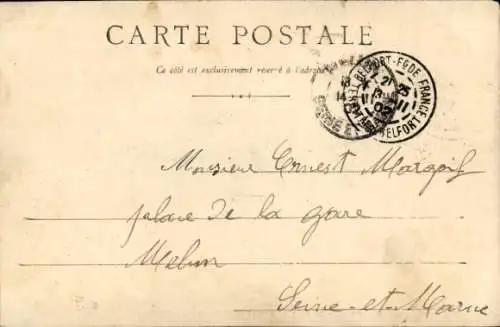 CARTE POSTALE
Ce côté est exclusivement réservé à l'adresse
BELFORT-FG DE FRANCE
21 25
13 11
02
BELFORT
Monsieur Ernest
place de la gare
Melun
Seine-et-Marne